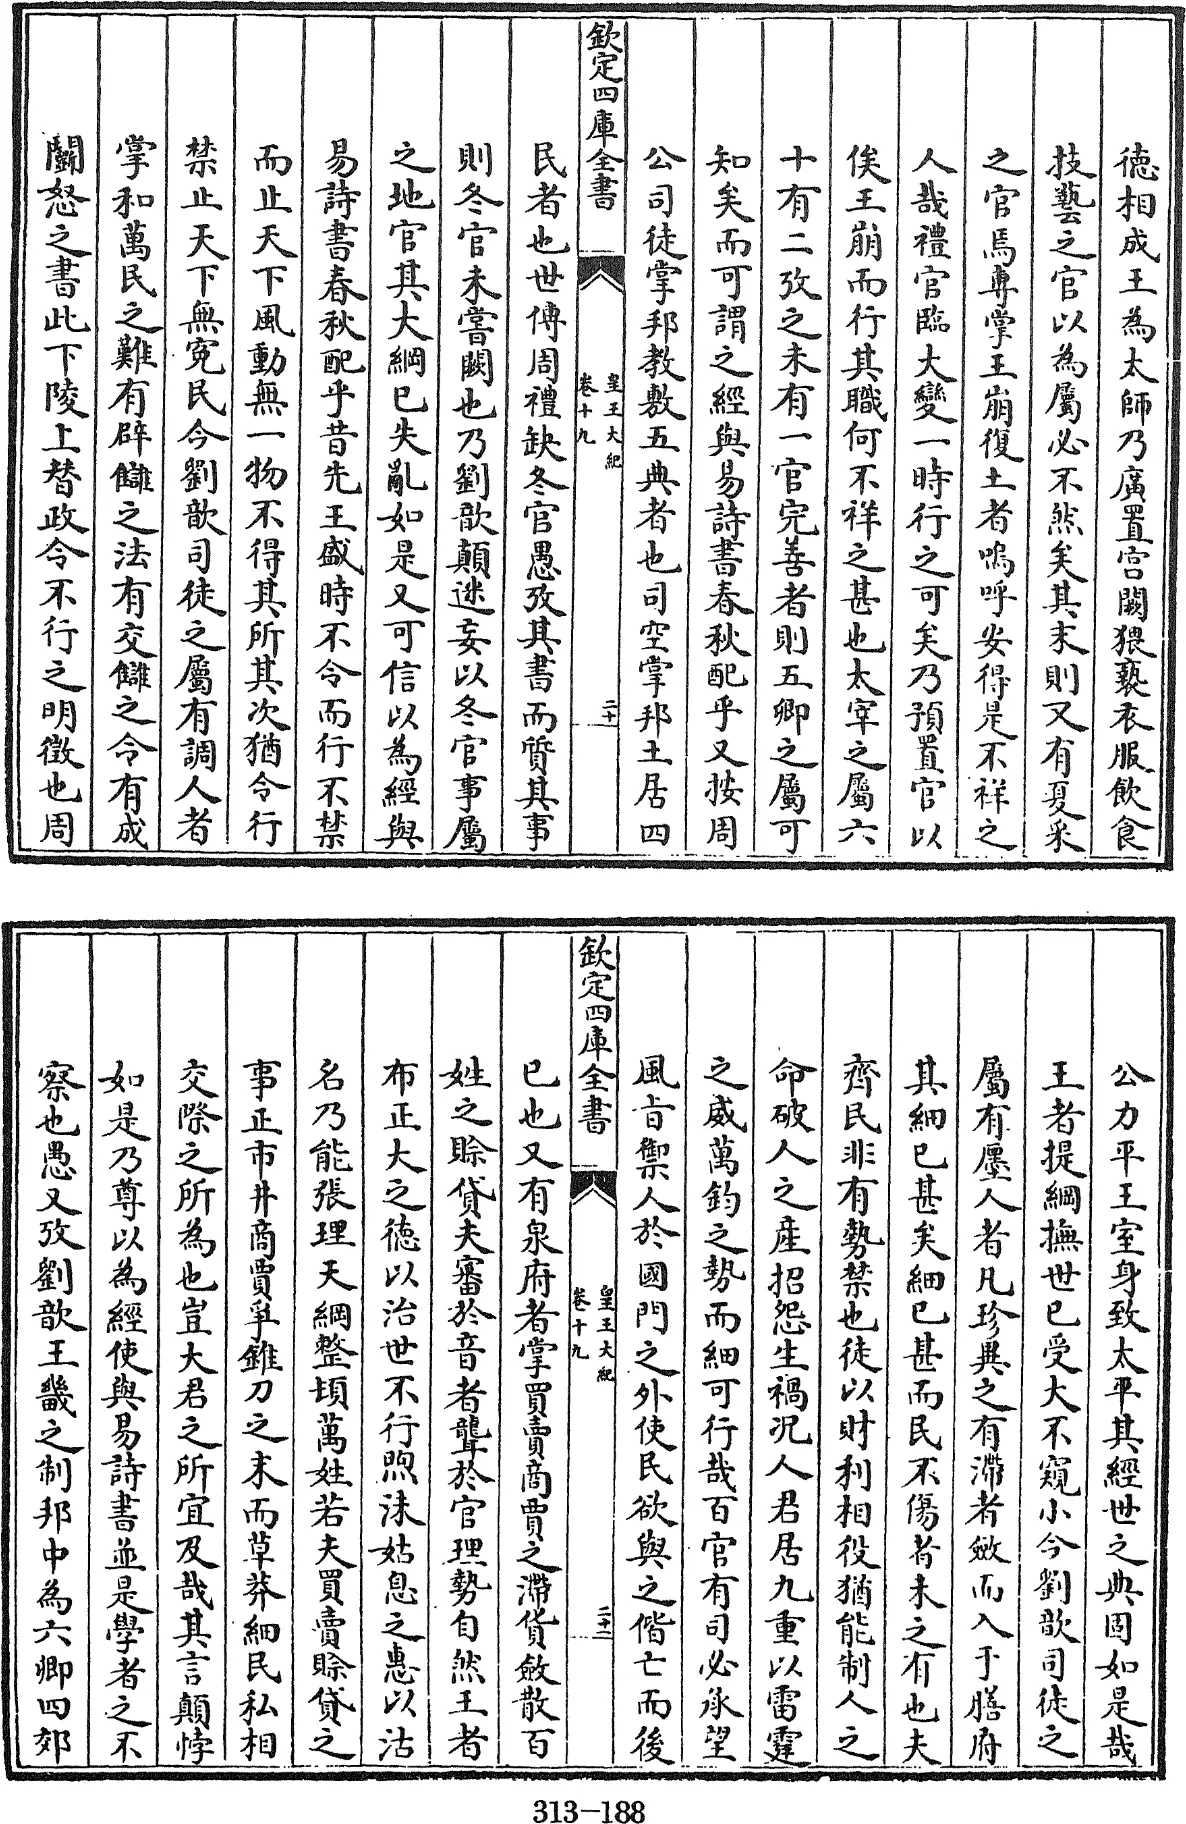 德相成王為太師乃廣置宫闕猥褻衣服飲食
技藝之官以為屬必不然矣其末則又有夏采
之官焉專掌王崩復土者嗚呼安得是不祥之
人哉禮官臨大變一時行之可矣乃預置官以
俟王崩而行其職何不祥之甚也太宰之屬六
十有二攷之未有一官完善者則五卿之屬可
知矣而可謂之經與易詩書春秋配乎又按周
公司徒掌邦教敷五典者也司空掌邦土居四
欽定四庫全書
皇王大紀
卷十九
二十
民者也世傳周禮缺冬官愚攷其書而質其事
則冬官未嘗闕也乃劉歆顛迷妄以冬官事屬
之地官其大綱已失亂如是又可信以為經與
易詩書春秋配乎昔先王盛時不令而行不禁
而止天下風動無一物不得其所其次猶令行
禁止天下無寃民今劉歆司徒之屬有調人者
掌和萬民之難有辟讎之法有交讎之令有成
鬭怒之書此下陵上替政令不行之明徵也周
公力平王室身致太平其經世之典固如是哉
王者提綱撫世已受大不窺小今劉歆司徒之
屬有廛人者凡珍異之有滯者斂而入于膳府
其細已甚矣細已甚而民不傷者未之有也夫
齊民非有勢禁也徒以財利相役猶能制人之
命破人之產招怨生禍况人君居九重以雷霆
之威萬鈞之勢而細可行哉百官有司必承望
風旨禦人於國門之外使民欲與之偕亡而後
欽定四庫全書
皇王大紀
卷十九
二十一
已也又有泉府者掌買賣商賈之滯貨斂散百
姓之賒貸夫審於音者聾於官理勢自然王者
布正大之德以治世不行煦沬姑息之惠以沽
名乃能張理天綱整頓萬姓若夫買賣賒貸之
事正市井商賈爭錐刀之末而草莽細民私相
交際之所為也豈大君之所宜及哉其言顛悖
如是乃尊以為經使與易詩書並是學者之不
察也愚又攷劉歆王畿之制邦中為六鄉四郊
313-188